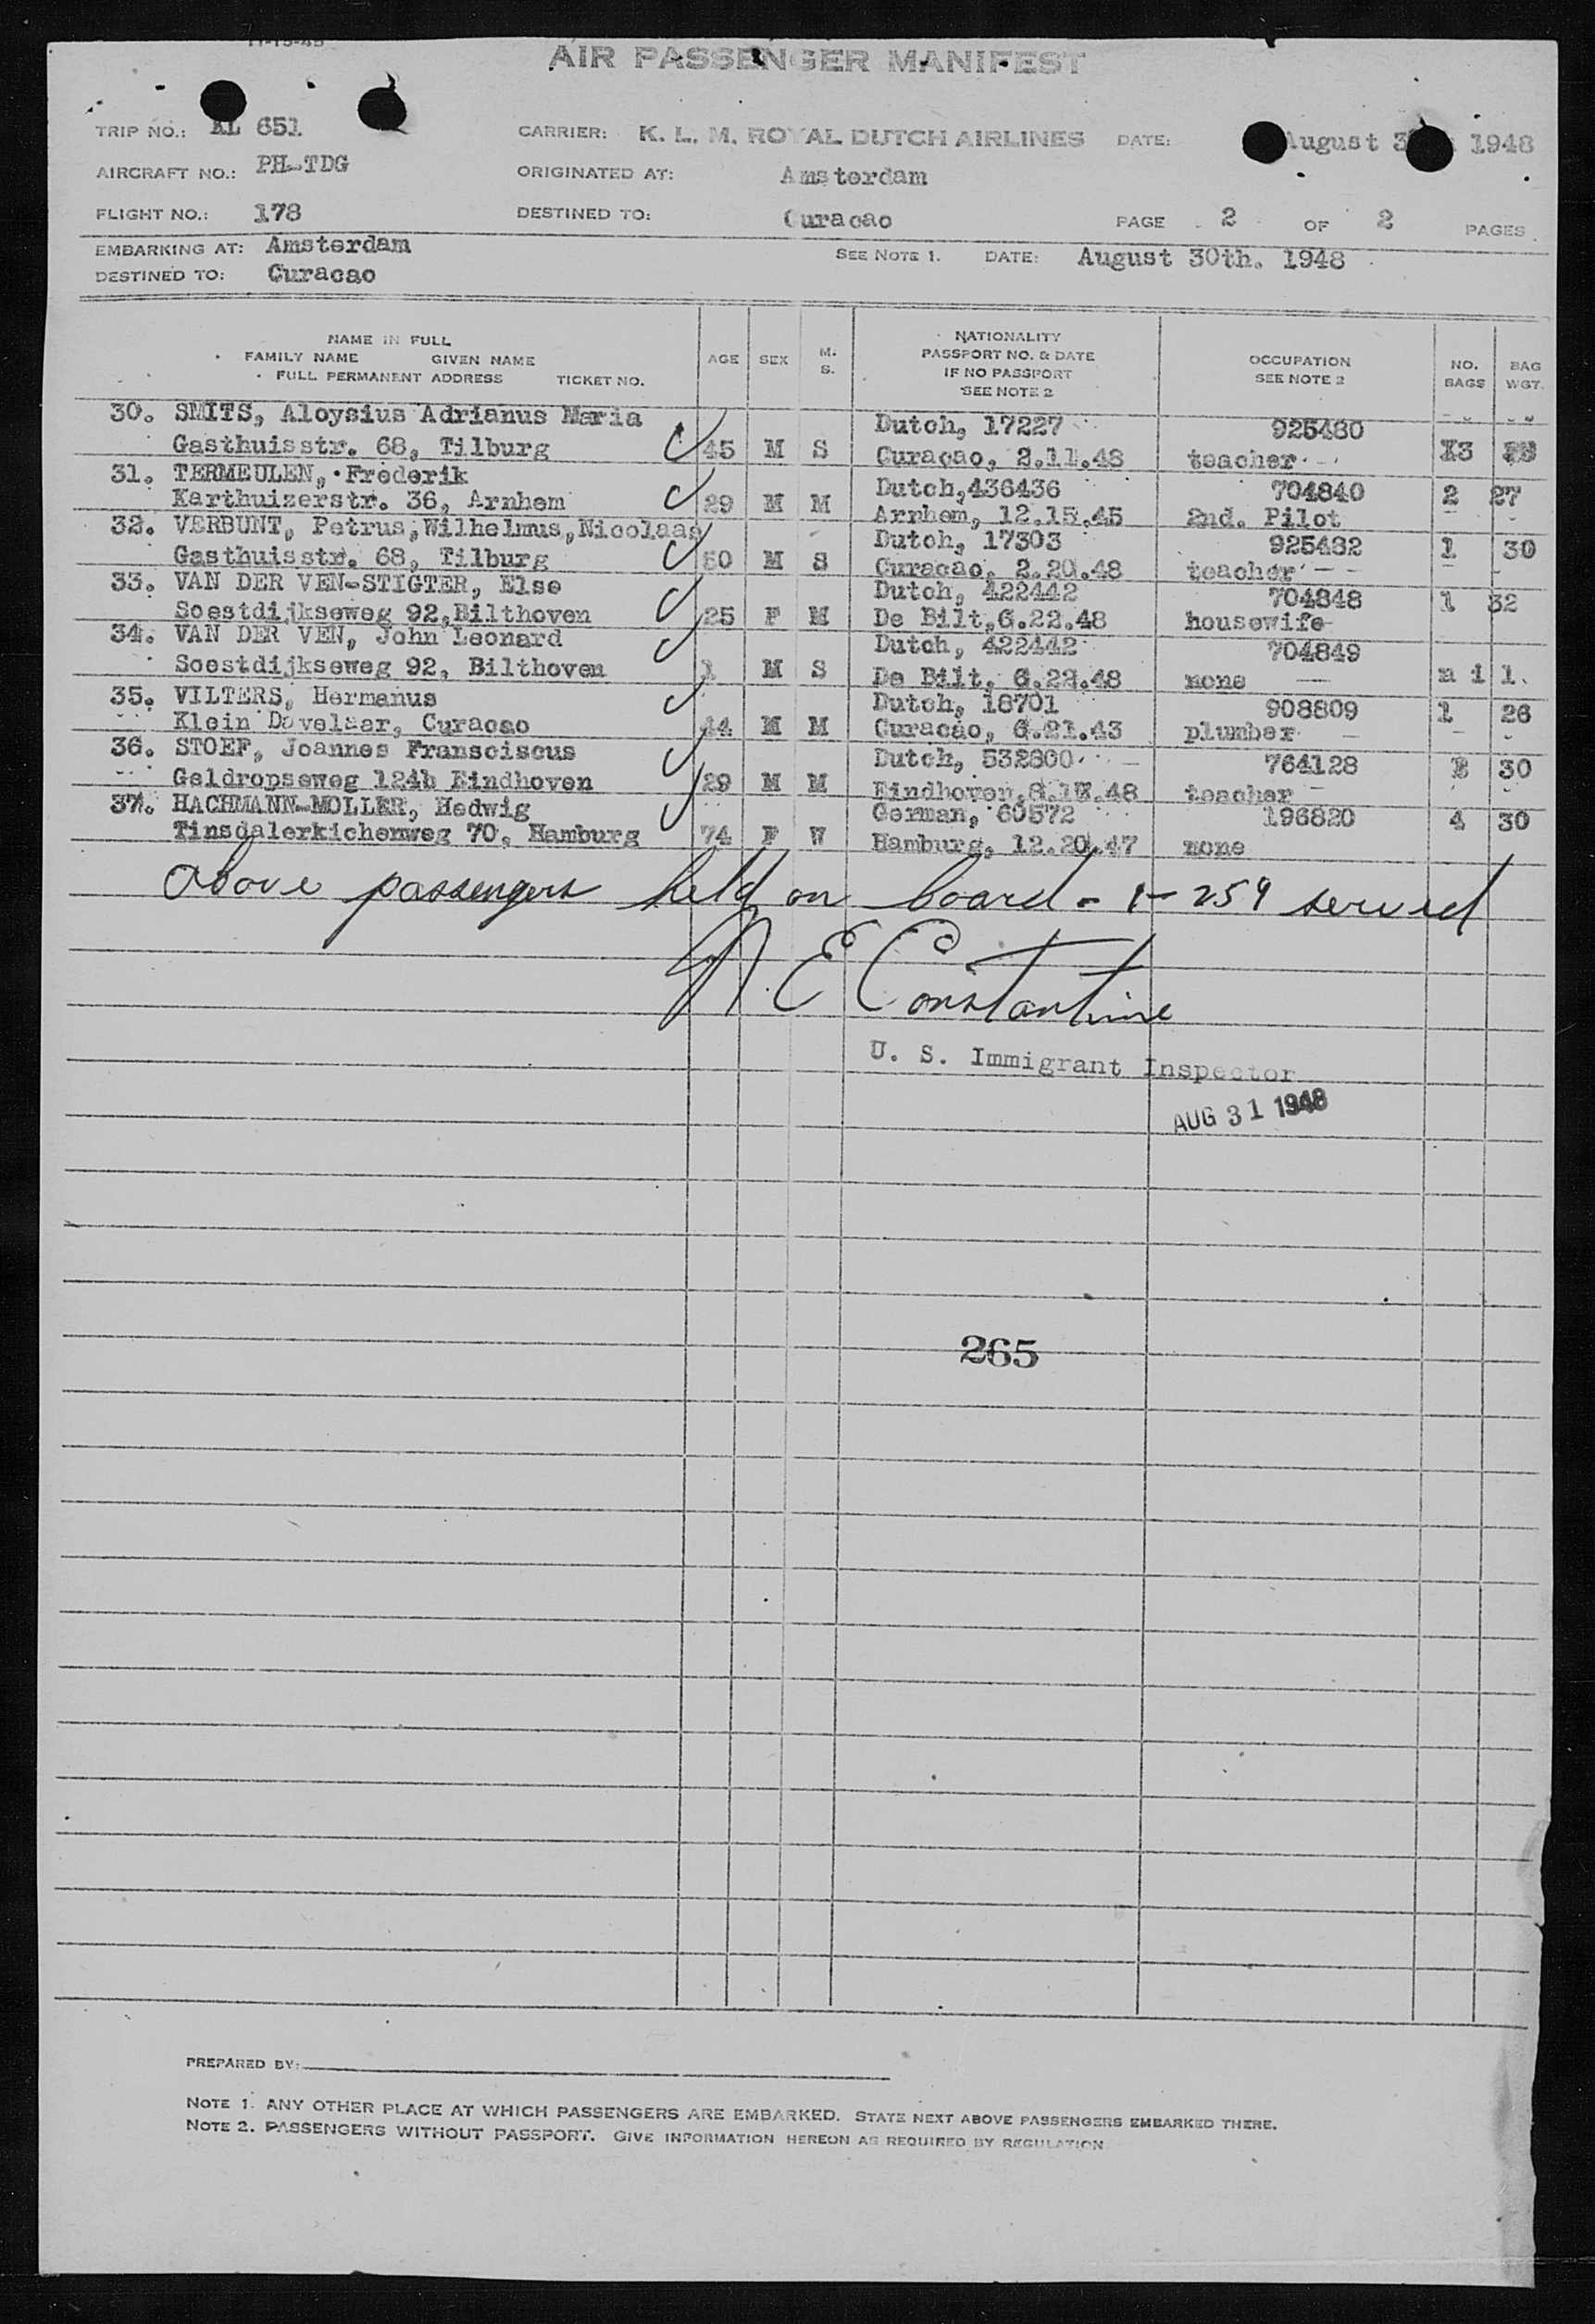 11-15-45
AIR PASSENGER MANIFEST
TRIP NO.: KL 651 CARRIER: K. L. M. ROYAL DUTCH AIRLINES DATE: August 1948
AIRCRAFT NO.: PH-TDG ORIGINATED AT: Amsterdam
FLIGHT NO.: 178 DESTINED TO: Curacao PAGE 2 OF 2 PAGES
EMBARKING AT: Amsterdam SEE NOTE 1. DATE: August 30th. 1948
DESTINED TO: Curacao
NAME IN FULL
FAMILY NAME GIVEN NAME
FULL PERMANENT ADDRESS TICKET NO.
AGE SEX M. S.
NATIONALITY
PASSPORT NO. & DATE
IF NO PASSPORT
SEE NOTE 2
OCCUPATION
SEE NOTE 2
NO. BAGS
BAG WGT.
30. SMITS, Aloysius Adrianus Maria Dutch, 17227 925480
Gasthuisstr. 68, Tilburg 45 M S Curaçao, 2.11.48 teacher 3
31. TERMEULEN, Frederik Dutch,436436 704840 2 27
Karthuizerstr. 36, Arnhem 29 M M Arnhem, 12.15.45 2nd. Pilot
32. VERBUNT, Petrus,Wilhelmus,Nicolaas Dutch, 17303 925482 1 30
Gasthuisstr. 68, Tilburg 50 M S Curacao, 2.20.48 teacher
33. VAN DER VEN-STIGTER, Else Dutch, 422442 704848 1 32
Soestdijkseweg 92,Bilthoven 25 F M De Bilt,6.22.48 housewife
34. VAN DER VEN, John Leonard Dutch, 422442 704849
Soestdijkseweg 92, Bilthoven 1 M S De Bilt, 6.22.48 none n i l.
35. VILTERS, Hermanus Dutch, 18701 908809 1 26
Klein Davelaar, Curacao 44 M M Curacao, 6.21.43 plumber
36. STOEF, Joannes Fransciscus Dutch, 532800 764128 30
Geldropseweg 124b Eindhoven 29 M M Eindhoven, 48 teacher
37. HACHMANN-MOLLER, Hedwig German, 60572 196820 4 30
Tinsdalerkichenweg 70, Hamburg 74 F W Hamburg, 12.20.47 none
Above passengers held on board - I-259 served
N. E Constantine
U. S. Immigrant Inspector
AUG 31 1948
265
PREPARED BY:
NOTE 1. ANY OTHER PLACE AT WHICH PASSENGERS ARE EMBARKED. STATE NEXT ABOVE PASSENGERS EMBARKED THERE.
NOTE 2. PASSENGERS WITHOUT PASSPORT. GIVE INFORMATION HEREON AS REQUIRED BY REGULATION